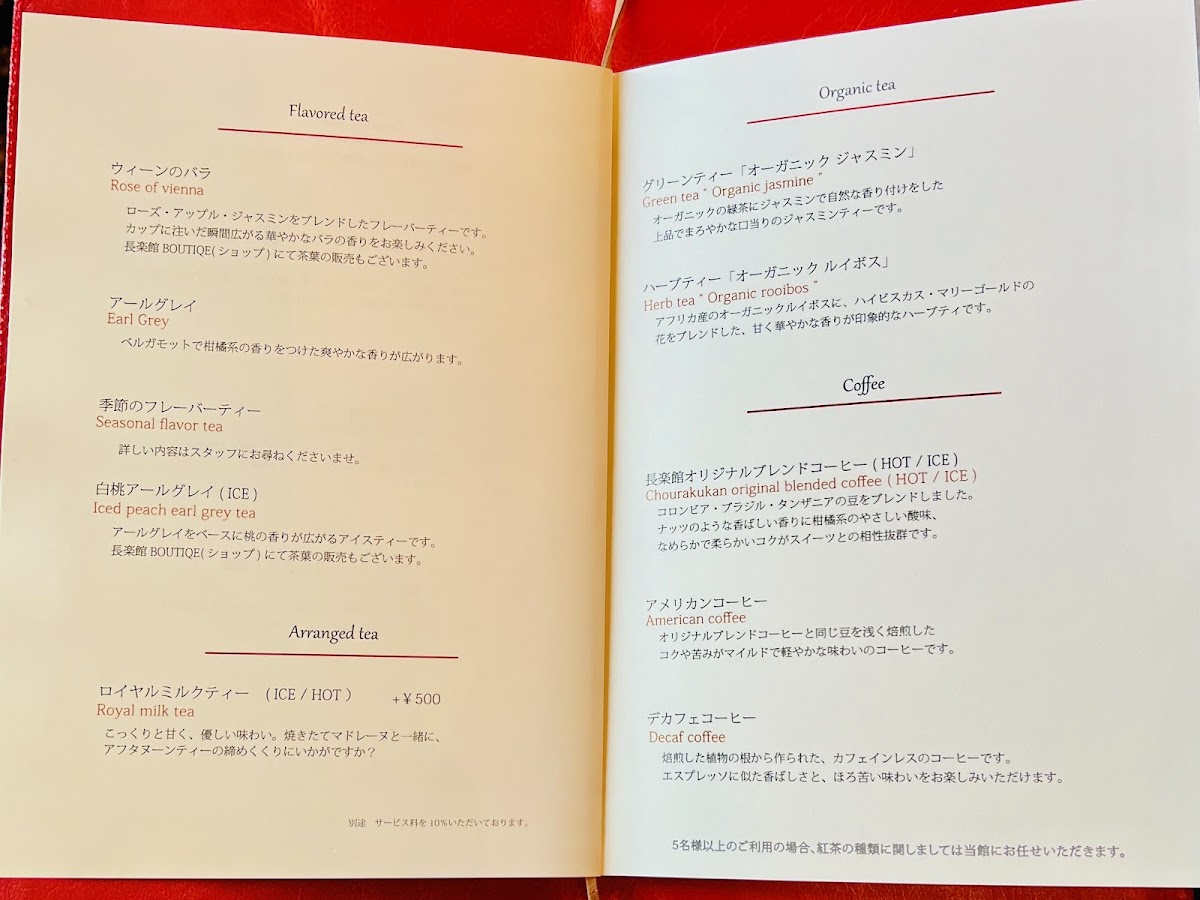 Flavored tea
ウィーンのバラ
Rose of vienna
ローズ・アップル・ジャスミンをブレンドしたフレーバーティーです。
カップに注いだ瞬間広がる華やかなバラの香りをお楽しみください。
長楽館 BOUTIQE(ショップ)にて茶葉の販売もございます。
アールグレイ
Earl Grey
ベルガモットで柑橘系の香りをつけた爽やかな香りが広がります。
季節のフレーバーティー
Seasonal flavor tea
詳しい内容はスタッフにお尋ねくださいませ。
白桃アールグレイ ( ICE )
Iced peach earl grey tea
アールグレイをベースに桃の香りが広がるアイスティーです。
長楽館 BOUTIQE(ショップ)にて茶葉の販売もございます。
Arranged tea
ロイヤルミルクティー ( ICE / HOT ) +¥500
Royal milk tea
こっくりと甘く、優しい味わい。焼きたてマドレーヌと一緒に、
アフタヌーンティーの締めくくりにいかがですか？
別途 サービス料を10%いただいております。
Organic tea
グリーンティー「オーガニック ジャスミン」
Green tea “ Organic jasmine ”
オーガニックの緑茶にジャスミンで自然な香り付けをした
上品でまろやかな口当りのジャスミンティーです。
ハーブティー「オーガニック ルイボス」
Herb tea “ Organic rooibos ”
アフリカ産のオーガニックルイボスに、ハイビスカス・マリーゴールドの
花をブレンドした、甘く華やかな香りが印象的なハーブティです。
Coffee
長楽館オリジナルブレンドコーヒー ( HOT / ICE )
Chourakukan original blended coffee ( HOT / ICE )
コロンビア・ブラジル・タンザニアの豆をブレンドしました。
ナッツのような香ばしい香りに柑橘系のやさしい酸味、
なめらかで柔らかいコクがスイーツとの相性抜群です。
アメリカンコーヒー
American coffee
オリジナルブレンドコーヒーと同じ豆を浅く焙煎した
コクや苦みがマイルドで軽やかな味わいのコーヒーです。
デカフェコーヒー
Decaf coffee
焙煎した植物の根から作られた、カフェインレスのコーヒーです。
エスプレッソに似た香ばしさと、ほろ苦い味わいをお楽しみいただけます。
5名様以上のご利用の場合、紅茶の種類に関しましては当館にお任せいただきます。